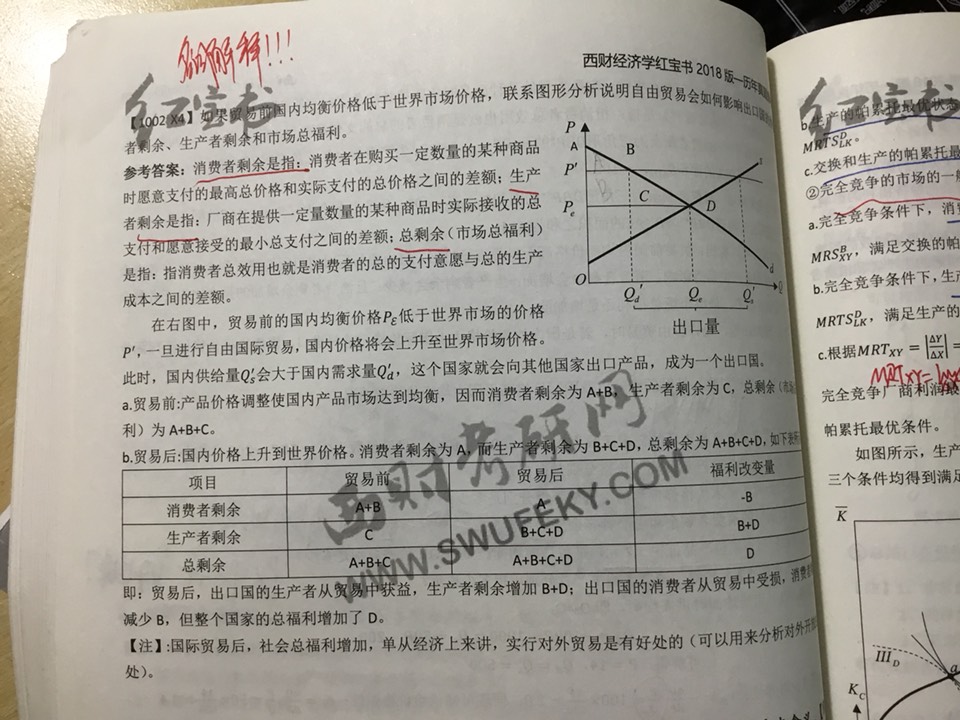 名词解释!!!
西财经济学红宝书 2018 版—历年真
红宝书
【1002 X4】如果贸易前国内均衡价格低于世界市场价格，联系图形分析说明自由贸易会如何影响出口国
者剩余、生产者剩余和市场总福利。
参考答案：消费者剩余是指：消费者在购买一定数量的某种商品
时愿意支付的最高总价格和实际支付的总价格之间的差额；生产
者剩余是指：厂商在提供一定量数量的某种商品时实际接收的总
支付和愿意接受的最小总支付之间的差额；总剩余（市场总福利）
是指：指消费者总效用也就是消费者的总的支付意愿与总的生产
成本之间的差额。
P
A
B
P'
A
B
C
s
Pe
D
d
O
Q'd
Qe
Q's
Q
出口量
在右图中，贸易前的国内均衡价格PE低于世界市场的价格
P'，一旦进行自由国际贸易，国内价格将会上升至世界市场价格。
此时，国内供给量Q's会大于国内需求量Q'd，这个国家就会向其他国家出口产品，成为一个出口国。
a.贸易前:产品价格调整使国内产品市场达到均衡，因而消费者剩余为 A+B，生产者剩余为 C，总剩余（市场
利）为 A+B+C。
b.贸易后:国内价格上升到世界价格。消费者剩余为 A，而生产者剩余为 B+C+D，总剩余为 A+B+C+D，如下表所
项目 贸易前 贸易后 福利改变量
消费者剩余 A+B A -B
生产者剩余 C B+C+D B+D
总剩余 A+B+C A+B+C+D D
西财考研网
WWW.SWUFEKY.COM
即：贸易后，出口国的生产者从贸易中获益，生产者剩余增加 B+D；出口国的消费者从贸易中受损，消费
减少 B，但整个国家的总福利增加了 D。
【注】:国际贸易后，社会总福利增加，单从经济上来讲，实行对外贸易是有好处的（可以用来分析对外开
处）。
红宝书
b.生产的帕累托最优状态
MRTS^D_LK。
c.交换和生产的帕累托最
②完全竞争的市场的一般
a.完全竞争条件下，消
MRS^B_XY，满足交换的帕
b.完全竞争条件下，生
MRTS^D_LK，满足生产的
c.根据MRT_XY = |ΔY/ΔX| =
完全竞争厂商利润最
帕累托最优条件。
如图所示，生产
三个条件均得到满足
K
III_D
a
K_C